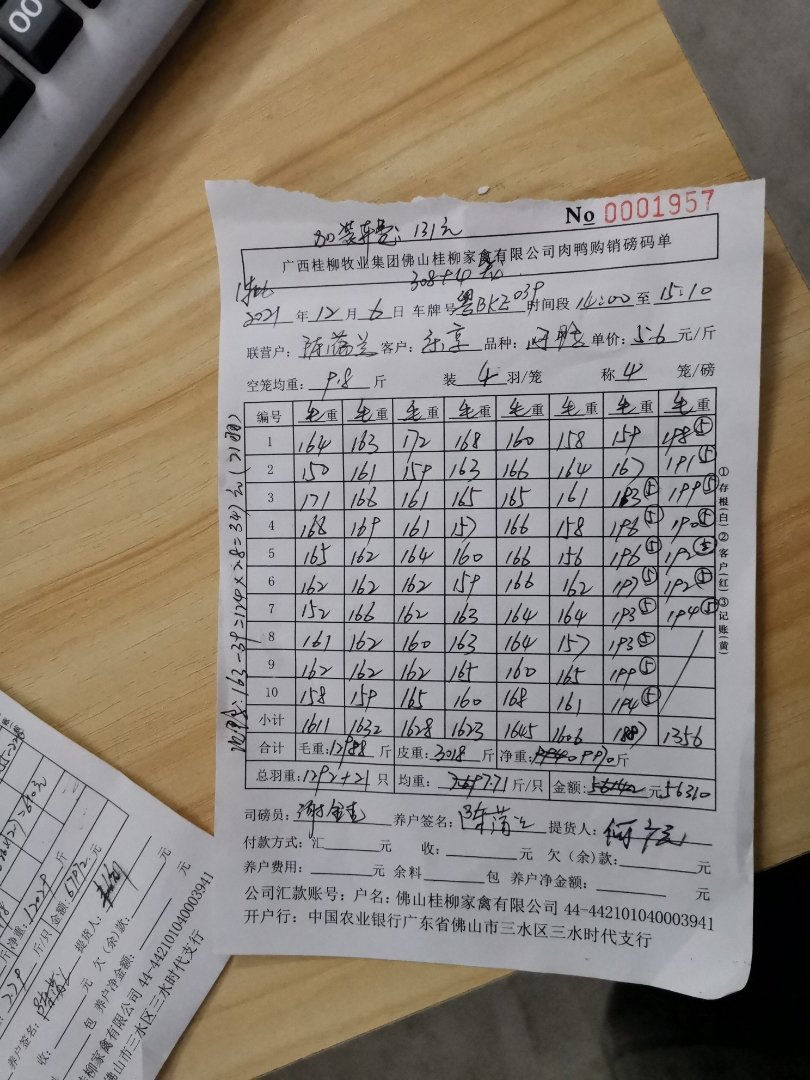 No 0001957
加装车费 131元
广西桂柳牧业集团佛山桂柳家禽有限公司肉鸭购销磅码单
308+4
2021年12月6日 车牌号粤BKZ039 时间段 14:00 至 15:10
联营户: 客户: 乐享 品种: 单价: 5.6 元/斤
空笼均重: 9.8 斤 装 4 羽/笼 称 4 笼/磅
编号 毛重 毛重 毛重 毛重 毛重 毛重 毛重 毛重
1 164 163 172 168 160 158 159 198⑤
2 150 161 159 163 166 164 167 191⑤
3 171 166 161 165 165 161 183⑤ 199⑤
4 168 169 161 157 166 158 196⑤ 190⑤
5 165 162 164 160 166 156 196⑤ 192⑤
6 162 162 162 159 166 162 197⑤ 192⑤
7 152 166 162 163 164 164 193⑤ 194⑤
8 161 162 160 163 164 157 193⑤
9 162 162 162 165 160 165 199⑤
10 158 159 165 160 168 161 194⑤
小计 1611 1632 1628 1623 1645 1606 1887 1356
合计 毛重: 12988 斤 皮重: 3018 斤 净重: 9970 斤
总羽重: 1292+21 只 均重: 7.71 斤/只 金额: 元 56310
司磅员: 养户签名: 提货人:
付款方式: 汇 元 收: 元 欠(余)款: 元
养户费用: 元 余料 包 养户净金额: 元
公司汇款账号: 户名: 佛山桂柳家禽有限公司 44-442101040003941
开户行: 中国农业银行广东省佛山市三水区三水时代支行
163-39=124×2.8=347元(21只)
①存根(白)②客户(红)③记账(黄)
净重: 12029 斤
斤/只 金额: 67912 元
养户签名: 提货人:
收: 元 欠(余)款: 元
包 养户净金额: 元
桂柳家禽有限公司 44-442101040003941
东省佛山市三水区三水时代支行